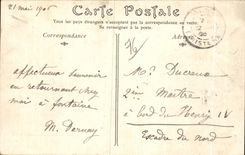 21 mai 1906
Carte Postale
Tous les pays étrangers n'acceptent pas la correspondance au verso.
Se renseigner à la poste.
Correspondance
affectueux souvenir
en retournant
mais à fontaine
M.
Mr Ducreux
2ème Maitre
à bord du Henri IV
Escadre du nord